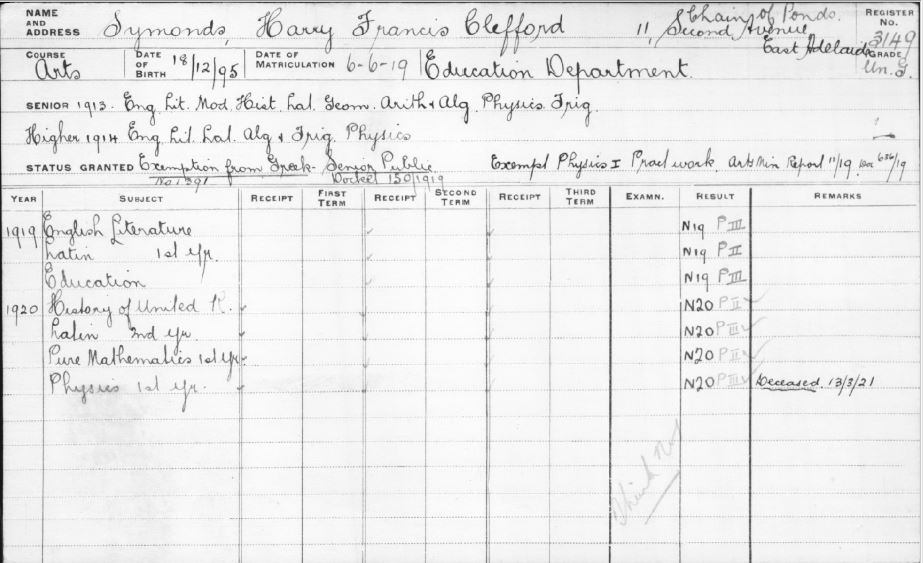 NAME AND ADDRESS Symonds, Harry Francis Clefford 11, Second Avenue East Adelaide Chain of Ponds.
REGISTER No. 3149
COURSE Arts DATE OF BIRTH 18/12/95 DATE OF MATRICULATION 6-6-19 Education Department. GRADE Un. G.
SENIOR 1913. Eng. Lit. Mod. Hist. Lat. Geom. Arith & Alg. Physics. Trig.
Higher 1914 Eng. Lit. Lat. Alg & Trig. Physics
STATUS GRANTED Exemption from Greek - Senior Public. Exempt Physics I Pract work. Arts Min Report 11/19 Doc 636/19
No 1391 Docket 150/1919
YEAR SUBJECT RECEIPT FIRST TERM RECEIPT SECOND TERM RECEIPT THIRD TERM EXAMN. RESULT REMARKS
1919 English Literature N19 P III
Latin 1st yr. N19 P II
Education N19 P III
1920 History of United K. N20 P II
Latin 2nd yr. N20 P III
Pure Mathematics 1st yr. N20 P II
Physics 1st yr. N20 P III Deceased. 13/3/21